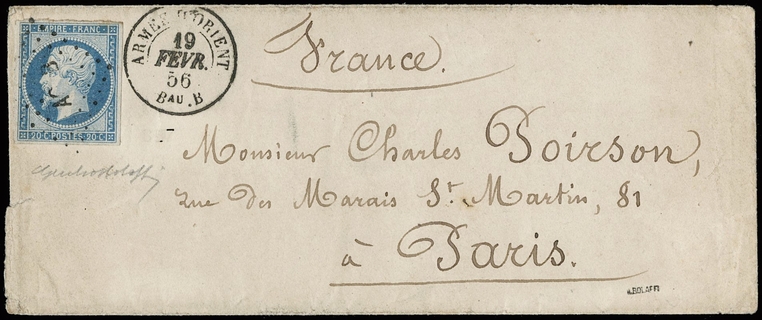 EMPIRE FRANC
20 C POSTES 20 C
ARMÉE D'ORIENT
19
FEVR.
56
BAU. B
France.
Monsieur Charles Poirson,
rue des Marais St. Martin, 81
à Paris.
A.BOLAFFI